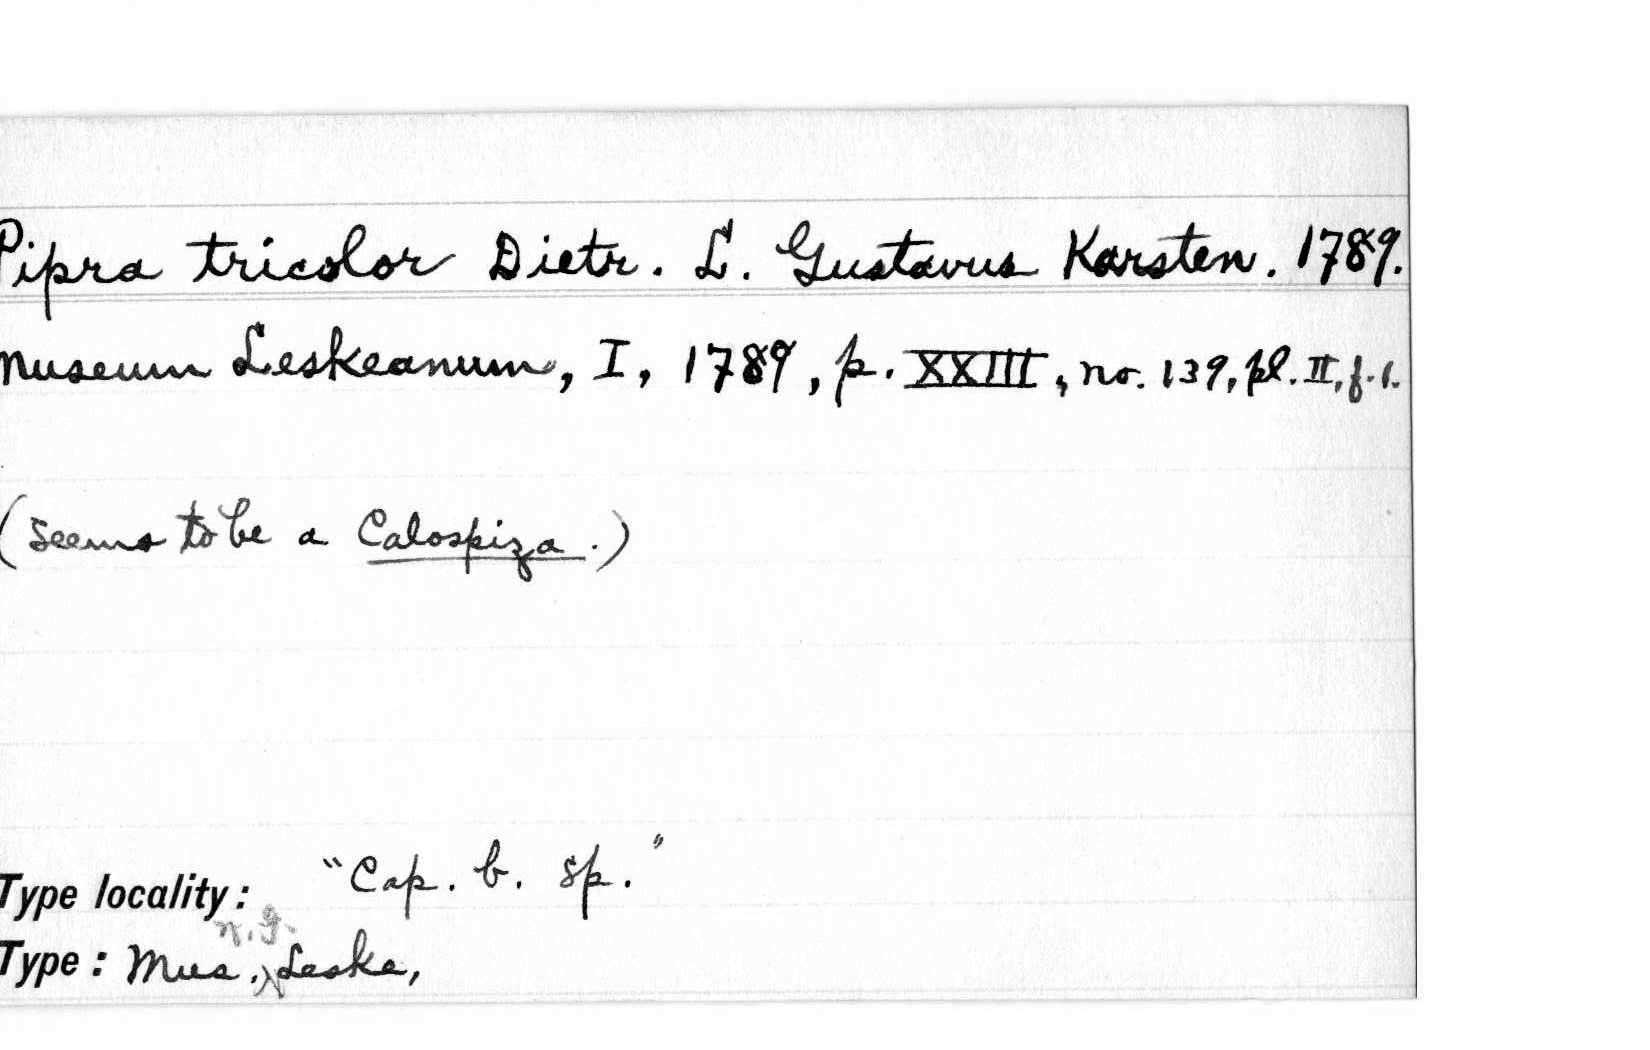 Pipra tricolor Dietr. L. Gustavus Karsten. 1789.
Museum Leskeanum, I, 1789, p. XXIII, no. 139, pl. II, f. 1.
(seems to be a Calospiza.)
Type locality: "Cap. b. sp."
n. g.
Type: Mus. Leske,